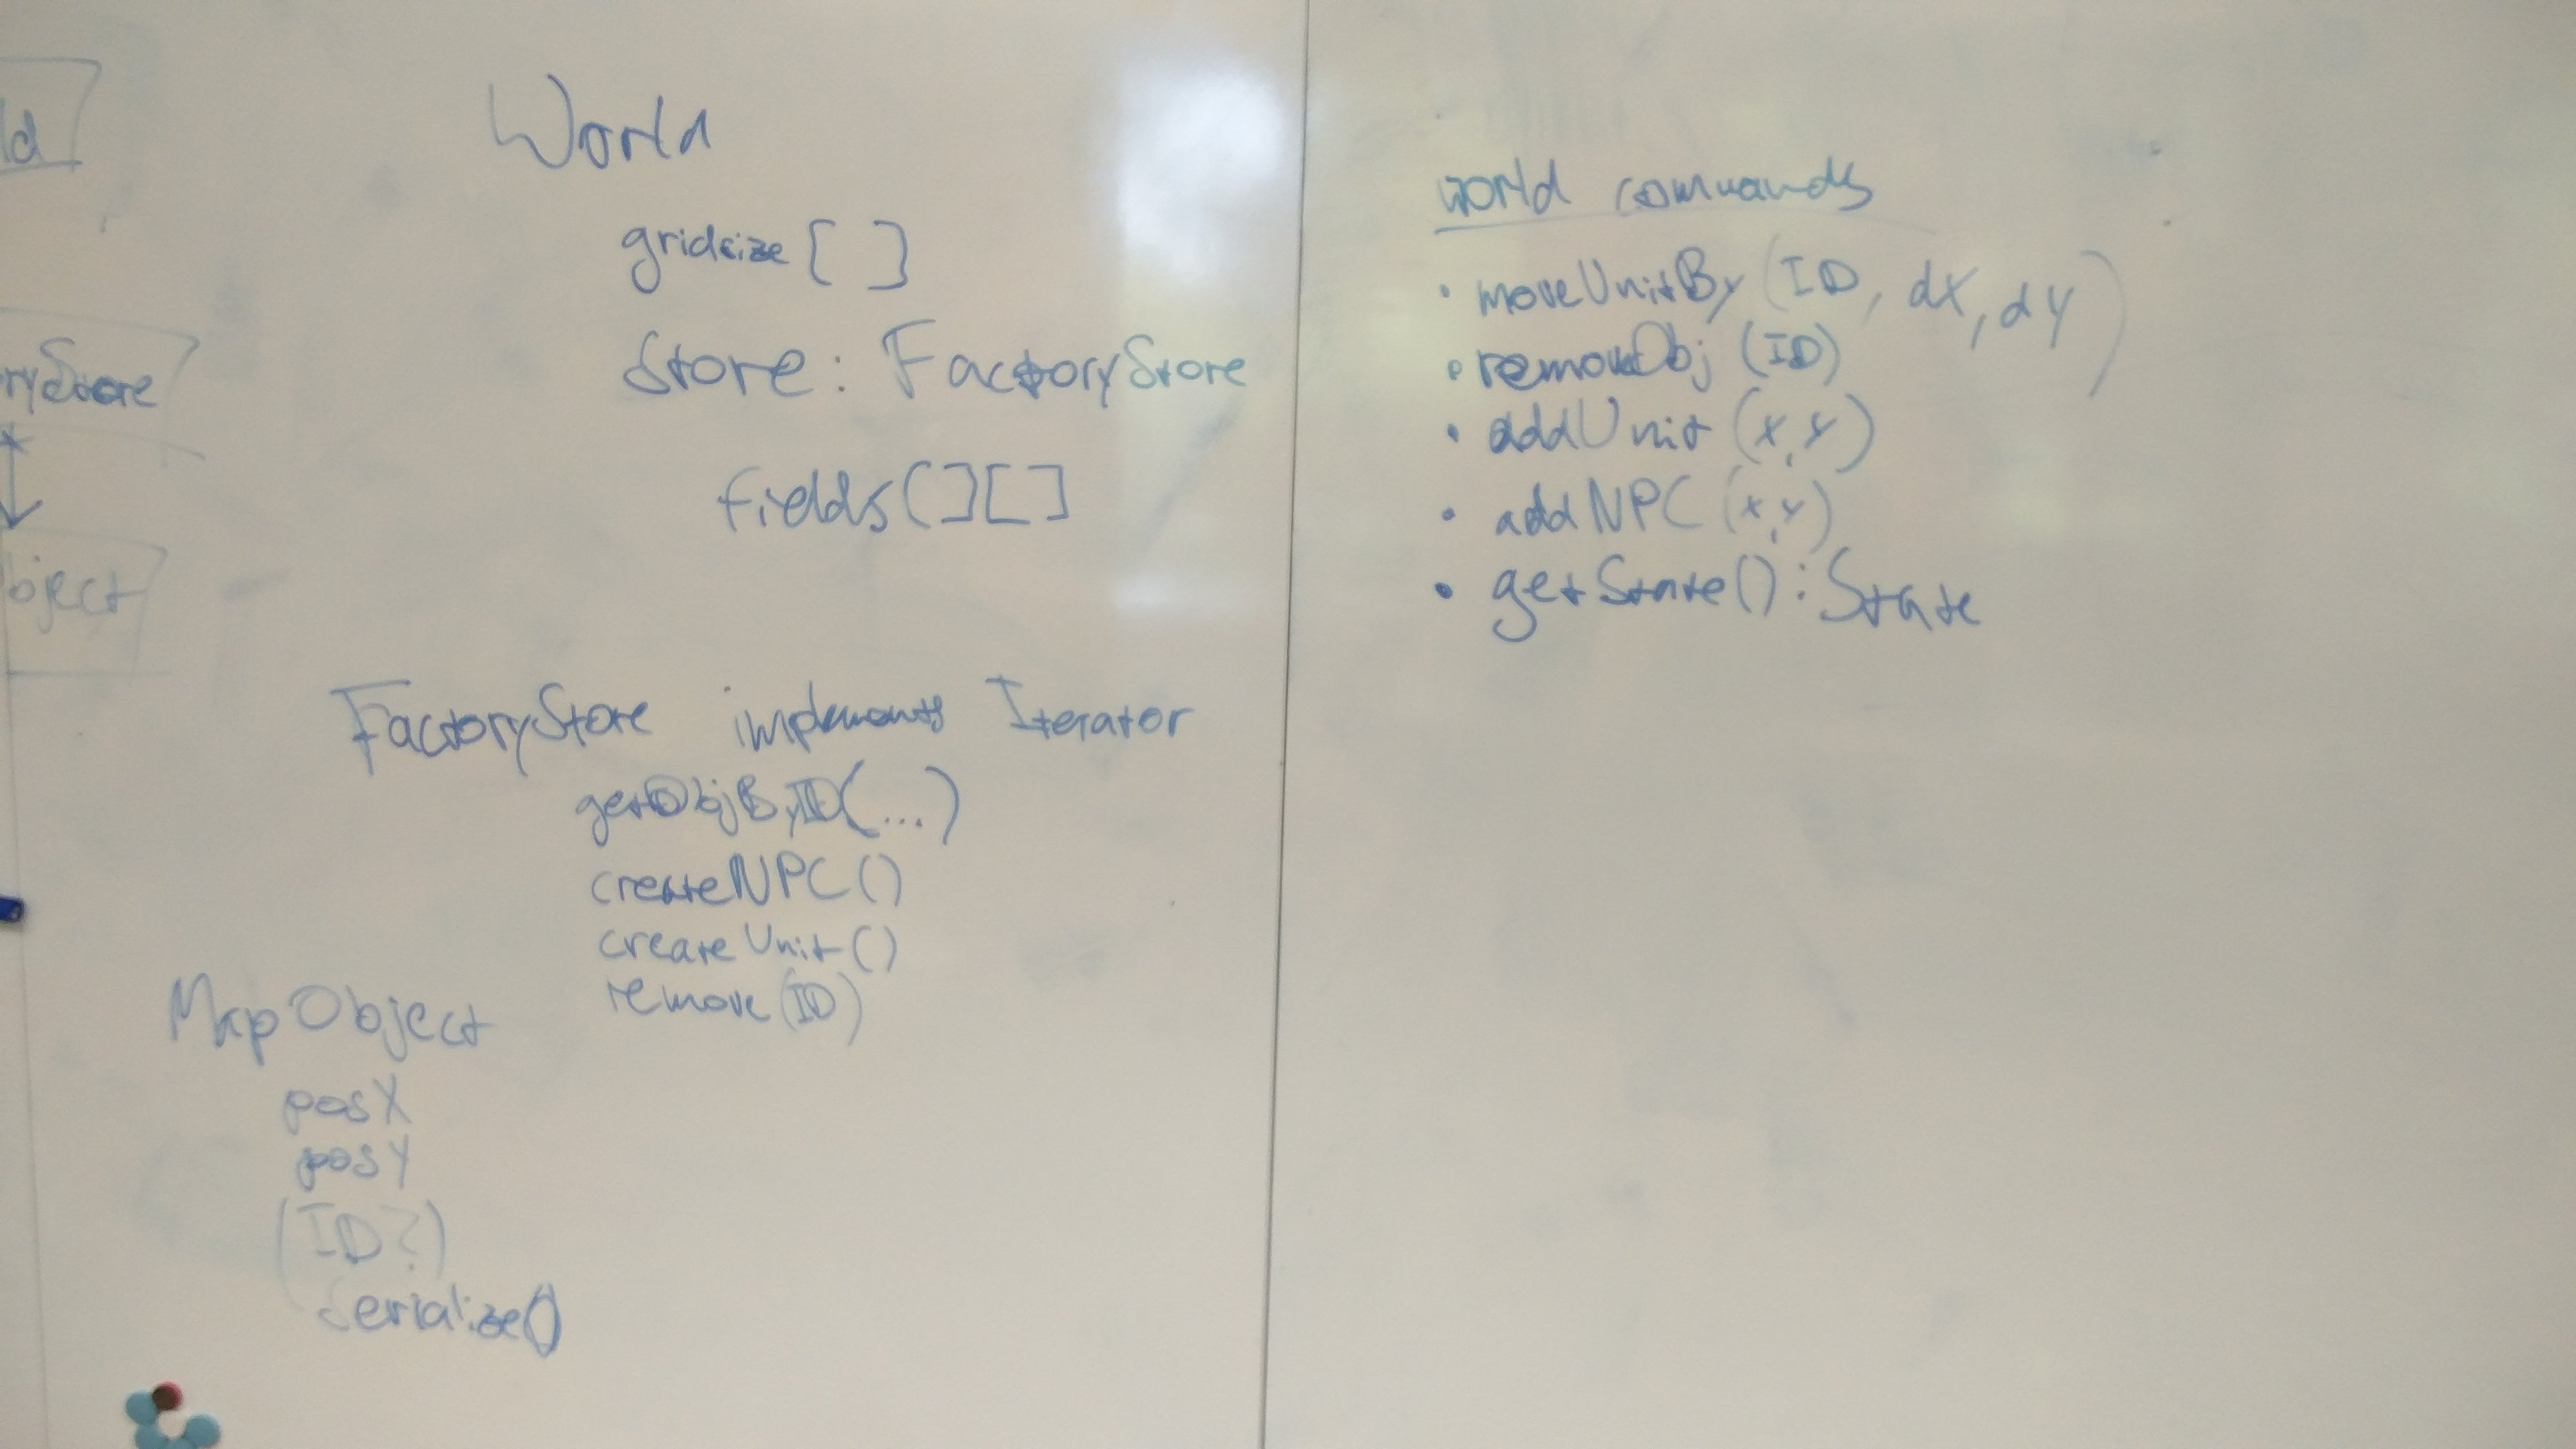 ld
ryStore
bject
World
gridsize [ ]
Store: FactoryStore
fields[][]
FactoryStore implements Iterator
getObjByID(...)
createNPC()
createUnit()
remove(ID)
MapObject
posX
posY
(ID?)
Serialize()
world commands
• moveUnitBy (ID, dX, dY)
• removeObj (ID)
• addUnit (x,y)
• addNPC (x,y)
• getState(): State